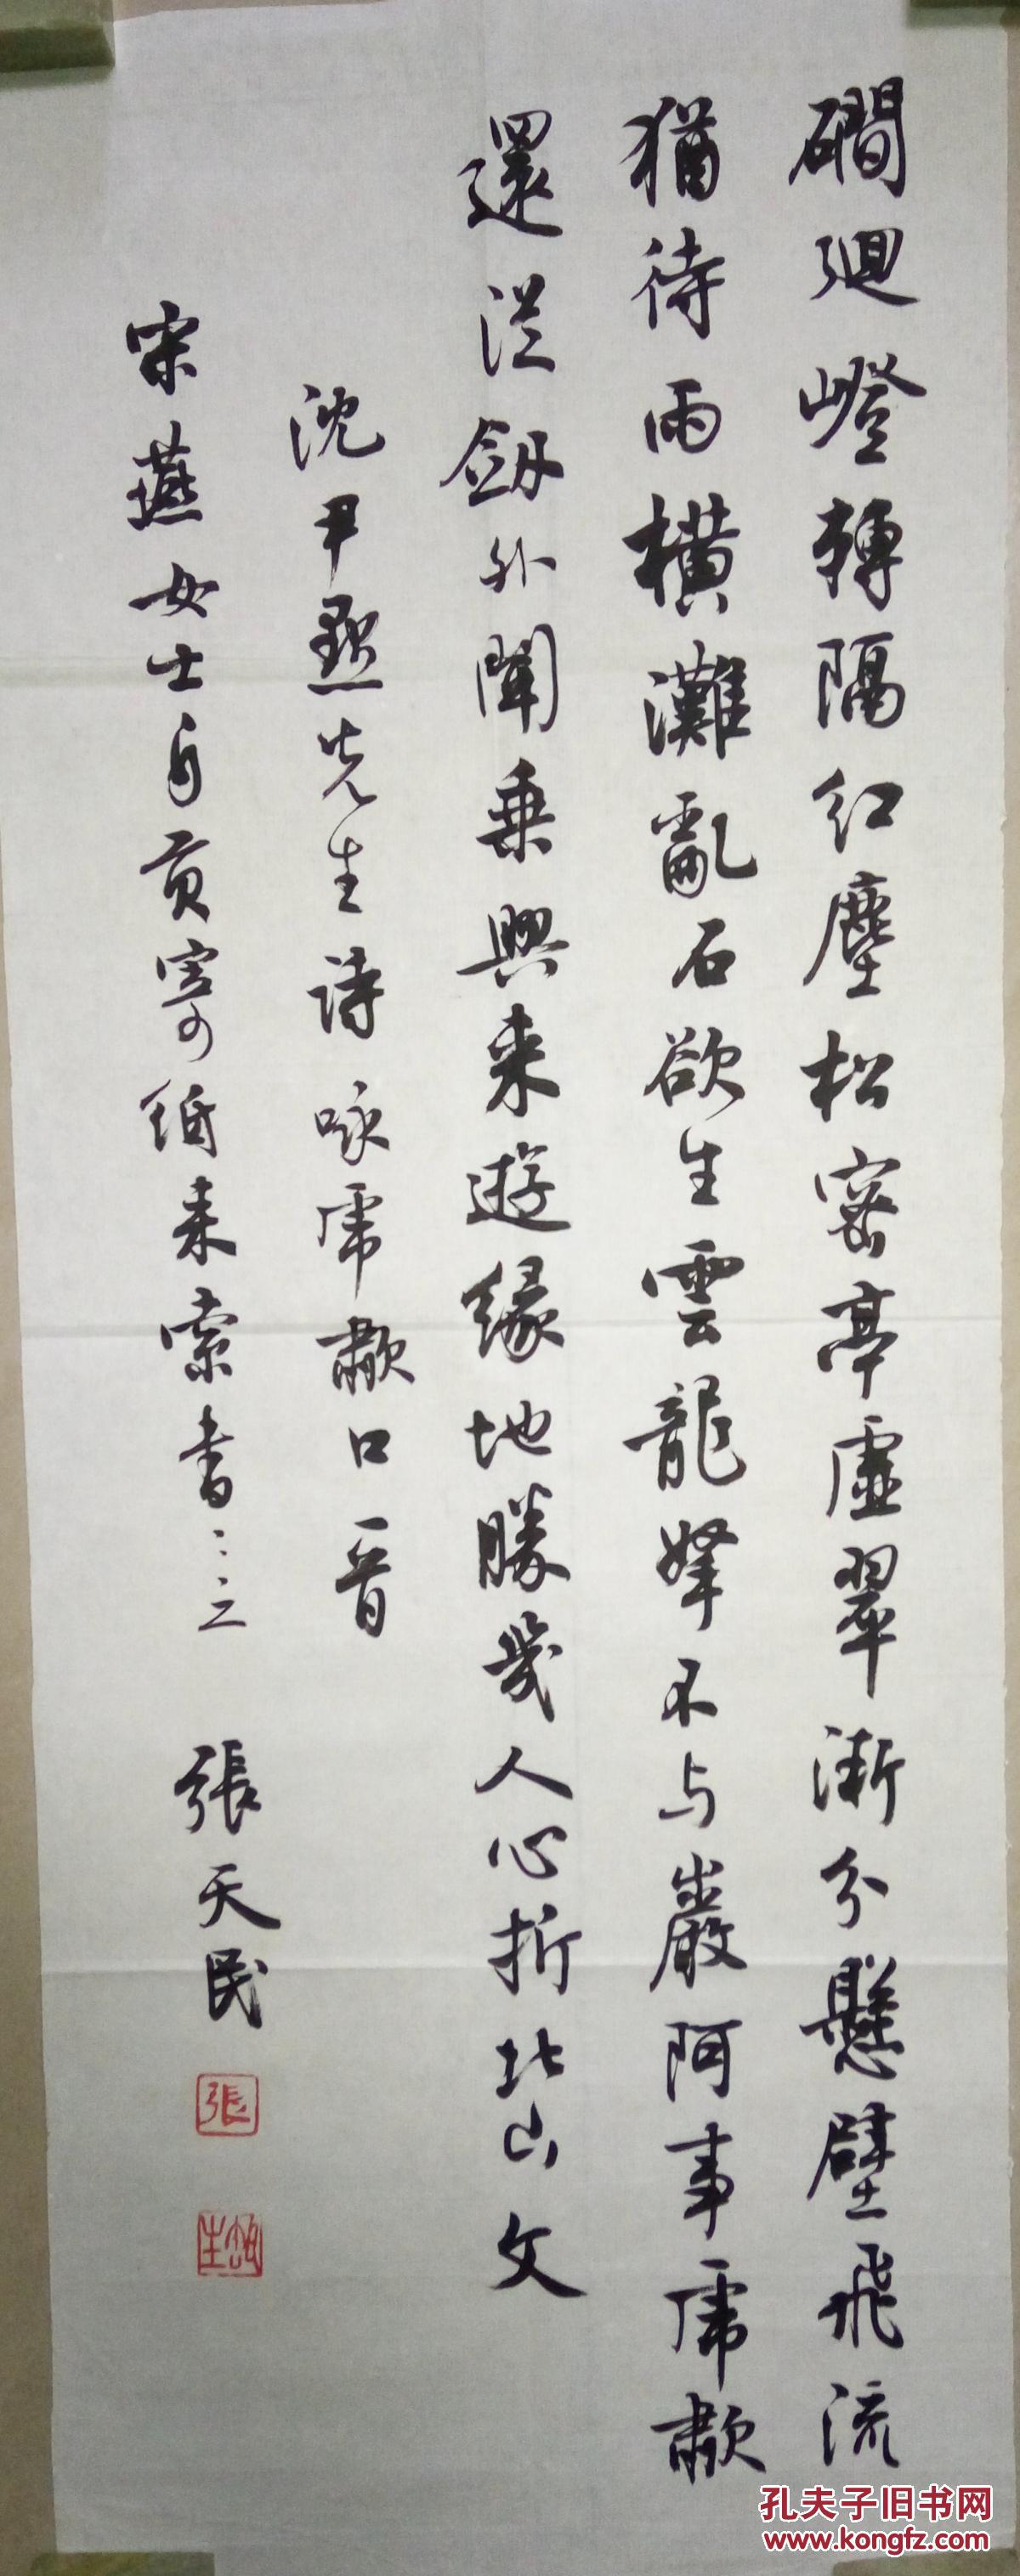 磵迴嶝轉隔紅塵松密亭虛翠漸分懸壁飛流
猶待雨橫灘亂石欲生雲龍孥不与巖阿事虎歗
還從劔外聞乗興来遊緣地勝幾人心折北山文
沈尹默先生詩咏虎歗口晉
宋燕女士自貢寄紙来索書
張天民
張
孔夫子旧书网
www.kongfz.com